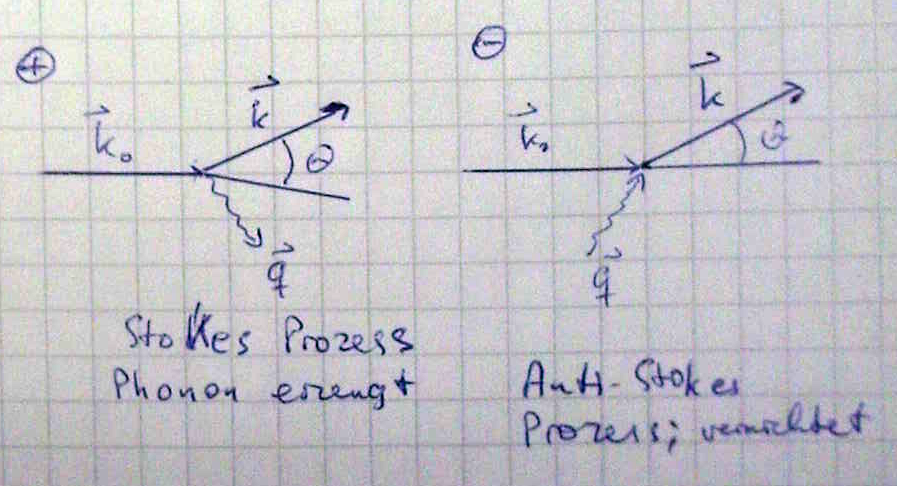 ⊕
k⃗₀
k⃗
θ
q⃗
Stokes Prozess
Phonon erzeugt
⊖
k⃗₀
k⃗
θ
q⃗
Anti-Stokes
Prozess; vernichtet